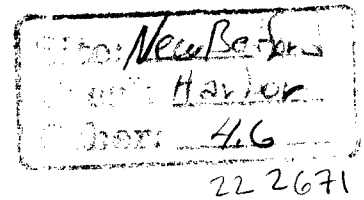 Site: New Bedford
Break: Harbor
Other: 4.6
222671